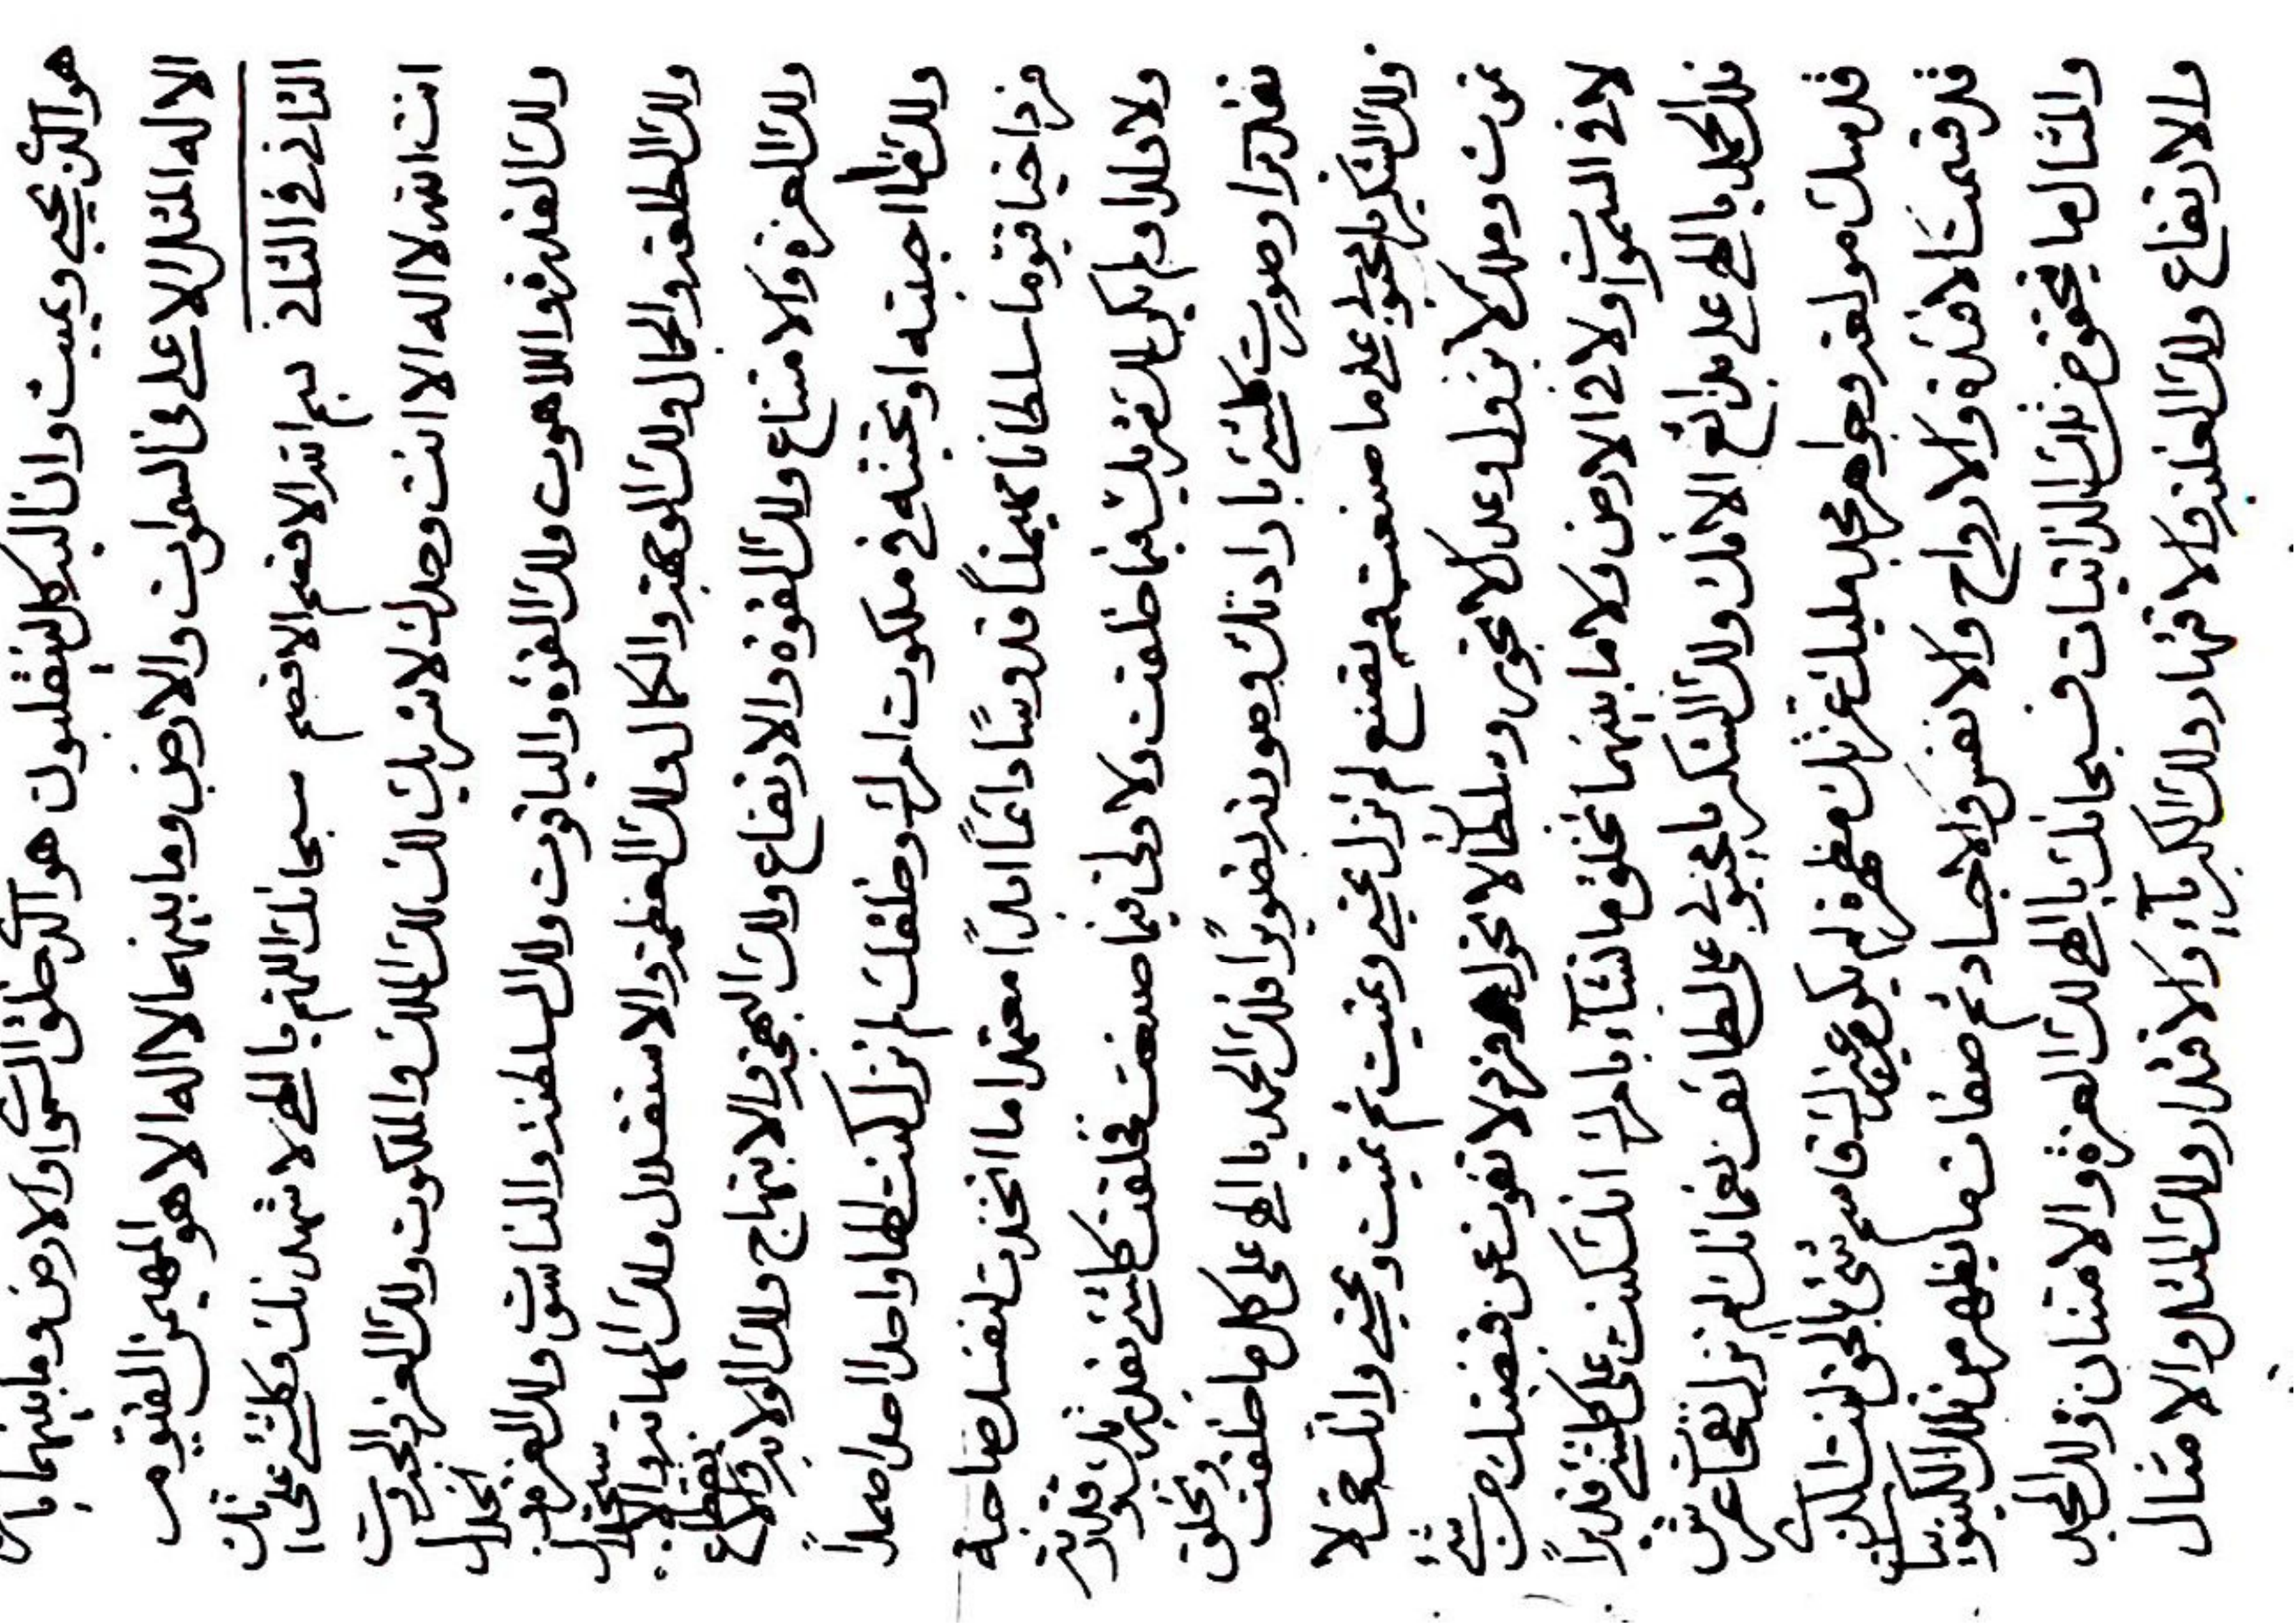 هو الذي يحيي ويميت وان اليه كل لينقلبون هو الذي خلق السموات والارض وما بينهما
الا له المثل الاعلى في السموات والارض وما بينهما لا اله الا هو المهيمن القيوم
الثاني في الثاني بسم الله الاقصم الاقصم سبحانك اللهم يا الهي لاشهدنك وكلشيء على انك
انت الله لا اله الا انت وحدك لا شريك لك لك الملك والملكوت ولك العز والجبروت
ولك القدرة واللاهوت ولك القوة والياقوت ولك السلطنة والناسوت ولك العزة والجلال
ولك الطلعة والجمال ولك الوجهة والكمال ولك العظمة والاستقلال ولك المهابة والاستجلال
ولك العزة والامتناع ولك القوة والارتفاع ولك البهجة والابتهاج ولك الولاية والانقطاع
ولك ما احببته او تحبنه في ملكوت امرك وخلقك لم تزل كنت الها واحدا احدا صمداً
فردا حيا قيوما سلطانا مهيمناً قدوساً دائماً ابداً معتمدا ما اتخذت لنفسك صاحبة
ولا ولدا ولم يكن لك شريك فيما خلقت ولا ولي فيما صنعت فخلقت كلشيء بقدرتك وقدرته
تقديرا وصورت كلشيء بارادتك وصورته تصويرًا فلك الحمد يا الهي على كل ما خلقت وتخلق
ولك الشكر يا محبوبي على ما صنعت وتصنع لم تزل تحيي وتميت ثم تميت وتحيي وانك حي لا
تموت وملك لا تزول وعدل لا تجور وسلطان لا تحول وفرد لا تفوت عن قبضتك من شيء
لا في السموات ولا في الارض ولا ما بينهما تخلق ما تشآء بامرك انك كنت على كلشيء قديراً
فلك الحمد يا الهي على بدايع الائك ولك الشكر يا محبوبي على لطائف نعمائك لم تزل نفحات عرش
قدسك وجواهر مجد مليك عزتك مظهرة لم يكن غيرك قاسم شيء بالحق الممكنات
قد قسمت الافئدة والارواح والانفس والاجساد ثم صفات ما يظهر من تلك الكينونيات
والمثال ما من تلك الذاتيات فسبحانك يا الهي لك العزة والامتنان ولك المجد
والارتفاع ولك الغلبة والاقتهار ولك الكبريآء والاقتدار ولك المثل والامثال